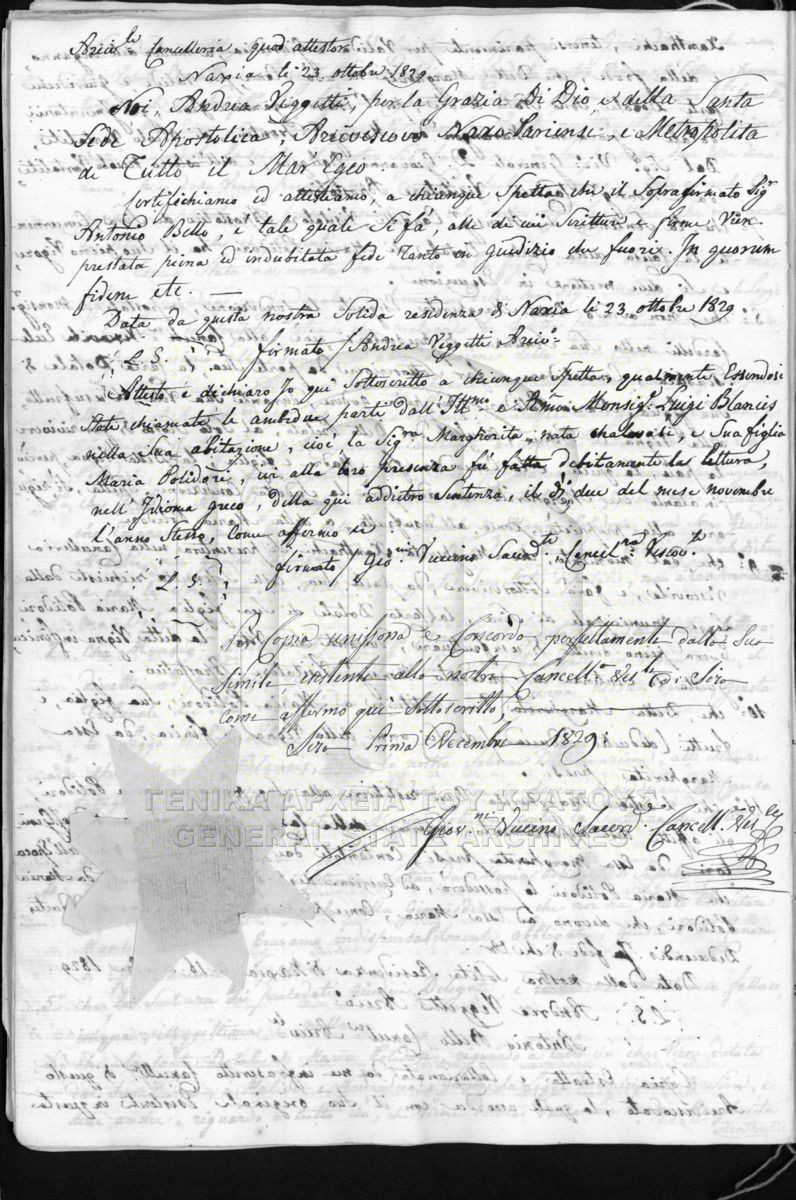 Arciv.le Cancelleria, quod attestor
Naxia li 23 ottobre 1829
Noi, Andrea Veggetti, per la Grazia Di Dio, e della Santa
Sede Apostolica, Arcivescovo Naxo Pariensi, e Metropolita
di Tutto il Mar Egeo.
Certifichiamo ed attestiamo, a chiunque Spetta che il Soprafirmato Sigr
Antonio Bello, e tale quale Si fa, alle di cui Scritture e firme Vien
prestata piena ed indubitata fede tanto in giudizio che fuori. In quorum
fidem etc. —
Data da questa nostra Solida residenza di Naxia li 23 ottobre 1829
L. S. firmato / Andrea Veggetti Arciv.o
Attesto e dichiaro Io qui Sottoscritto a chiunque Spetta, qualmente Essendosi
State chiamate le ambidue parti dall' Ill.mo e R.mo Monsig.r Luigi Blancis
nella Sua abitazione, cioè la Sig.ra Margherita, nata chalavasi, e Sua figlia
Maria Polidore, ivi alla loro presenza fù fatta, debitamente la lettura,
nell' Idioma greco, della qui addietro Sentenza, il dì due del mese novembre
l'anno Stesso, come affermo
L. S. firmato / Gio.ni Vucino Sacerd.te Cancel. Vescov.le
Per Copia unissona e Concorde perfettamente dallo Suo
Simile, esistente allo nostra Cancell.a Ves.le di Siro
come affermo qui Sottoscritto,
Siro Prima Decembre 1829
ΓΕΝΙΚΑ ΑΡΧΕΙΑ ΤΟΥ ΚΡΑΤΟΥΣ
GENERAL STATE ARCHIVES
Giov.ni Vucino Sacerd.e Cancell. Ves.le